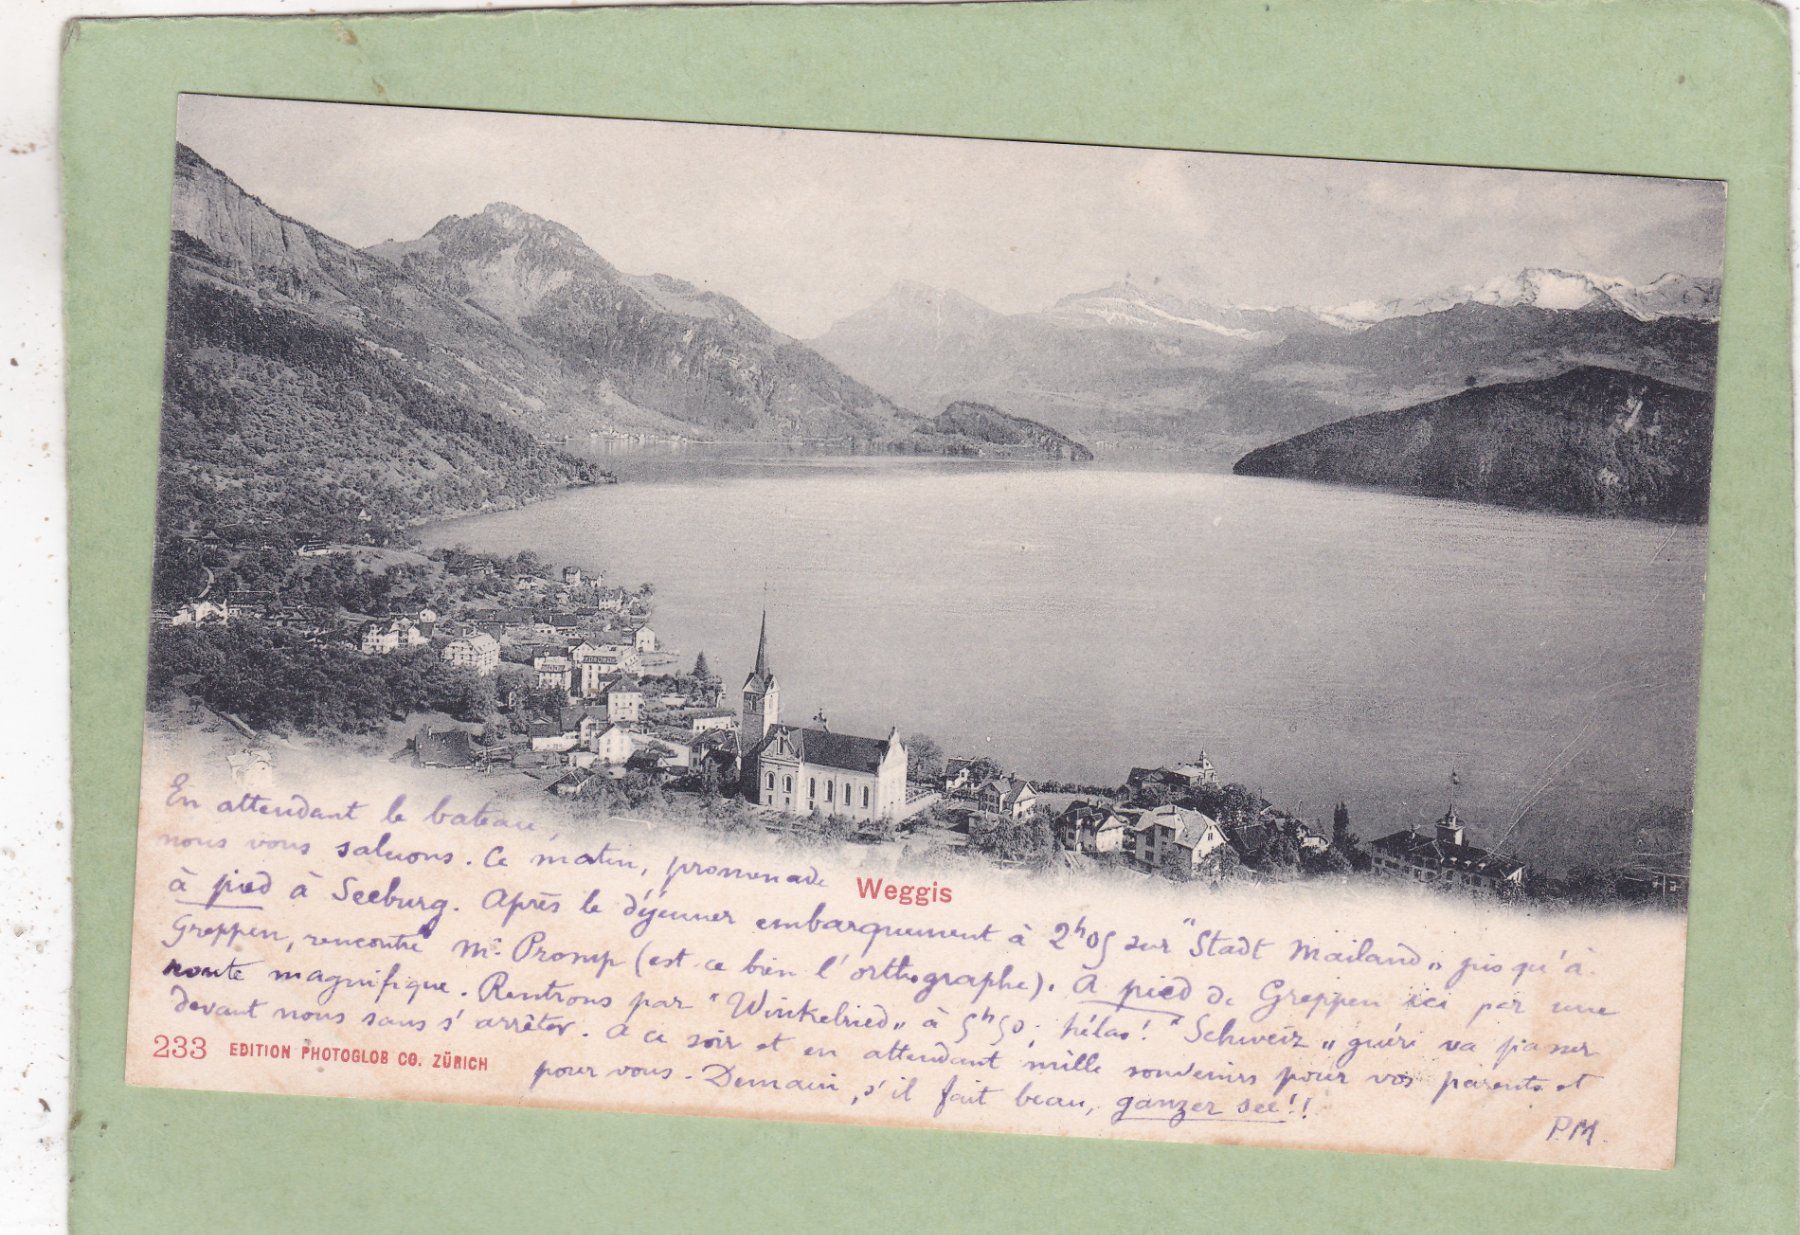 En attendant le bateau,
nous vous saluons. Ce matin, promenade
Weggis
à pied à Seeburg. Après le déjeuner embarquement à 2h05 sur "Stadt Mailand„ jusqu'à
Greppen, rencontré Mr. Promp (est-ce bien l'orthographe). A pied de Greppen ici par une
route magnifique. Rentrons par "Winkelried„ à 5h50; hélas! "Schweiz„ guéri va passer
devant nous sans s'arrêter. A ce soir et en attendant mille souvenirs pour vos parents et
pour vous. Demain, s'il fait beau, ganzer see!!
PM.
233 EDITION PHOTOGLOB CO. ZÜRICH